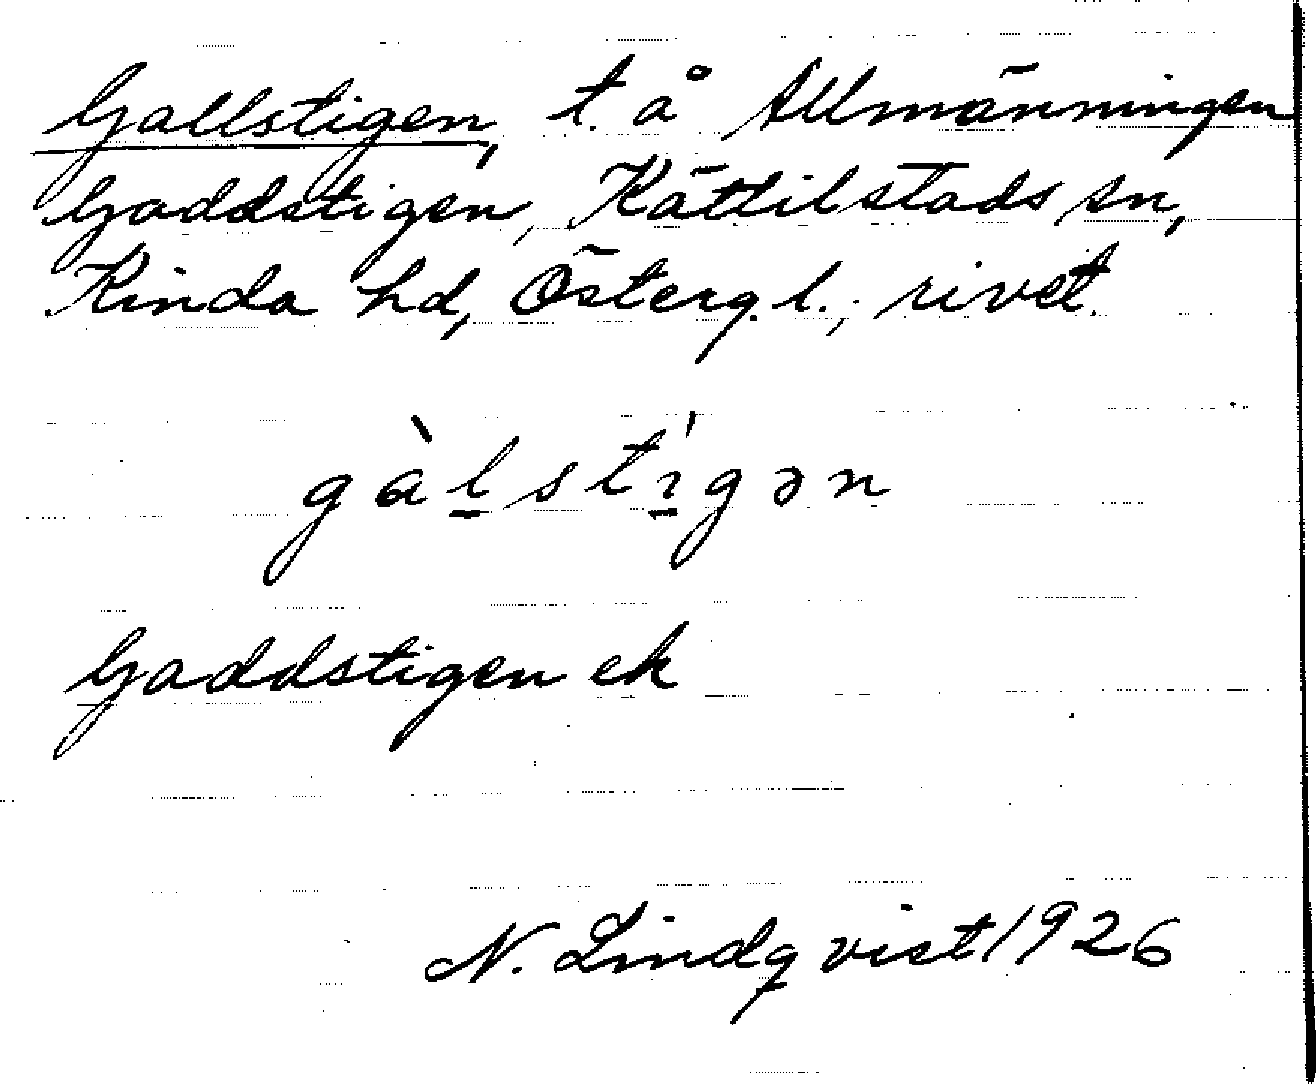 Gallstigen, t. å Allmänningen
Gaddstigen, Kättilstads sn,
Kinda hd, Österg. l.; rivet.
gàl̠stı̠́gən
Gaddstigen ek
N. Lindqvist 1926